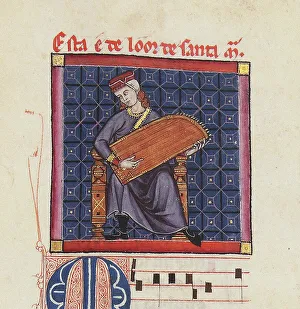 Esta é de loor de santa M̃.